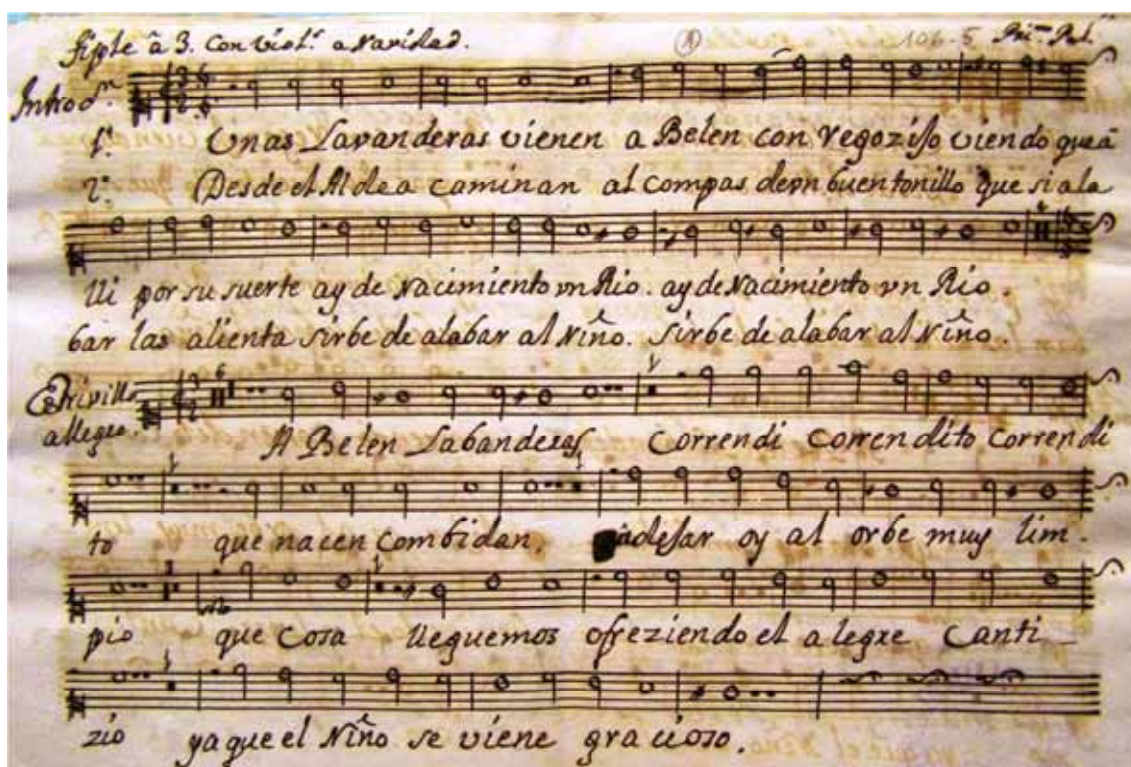 Tiple â 3. Con viol.s a Navidad. (A) 106-5
Introd.n
1.a Unas Lavanderas vienen a Belen con regozijo viendo que â
2.a Desde el Aldea caminan al compas de vn buen tonillo que si a la
lli por su suerte ay de Nacimiento vn Rio. ay de Nacimiento vn Rio.
bar las alienta sirbe de alabar al Niño. sirbe de alabar al Niño.
Estrivillo
allegro. A Belen Labanderas, Correndi correndito correndi
to que nacen combidan, â dejar oy al orbe muy lim-
pio que cosa lleguemos ofreziendo el alegre Canti
zio ya que el Niño se viene gracioso.